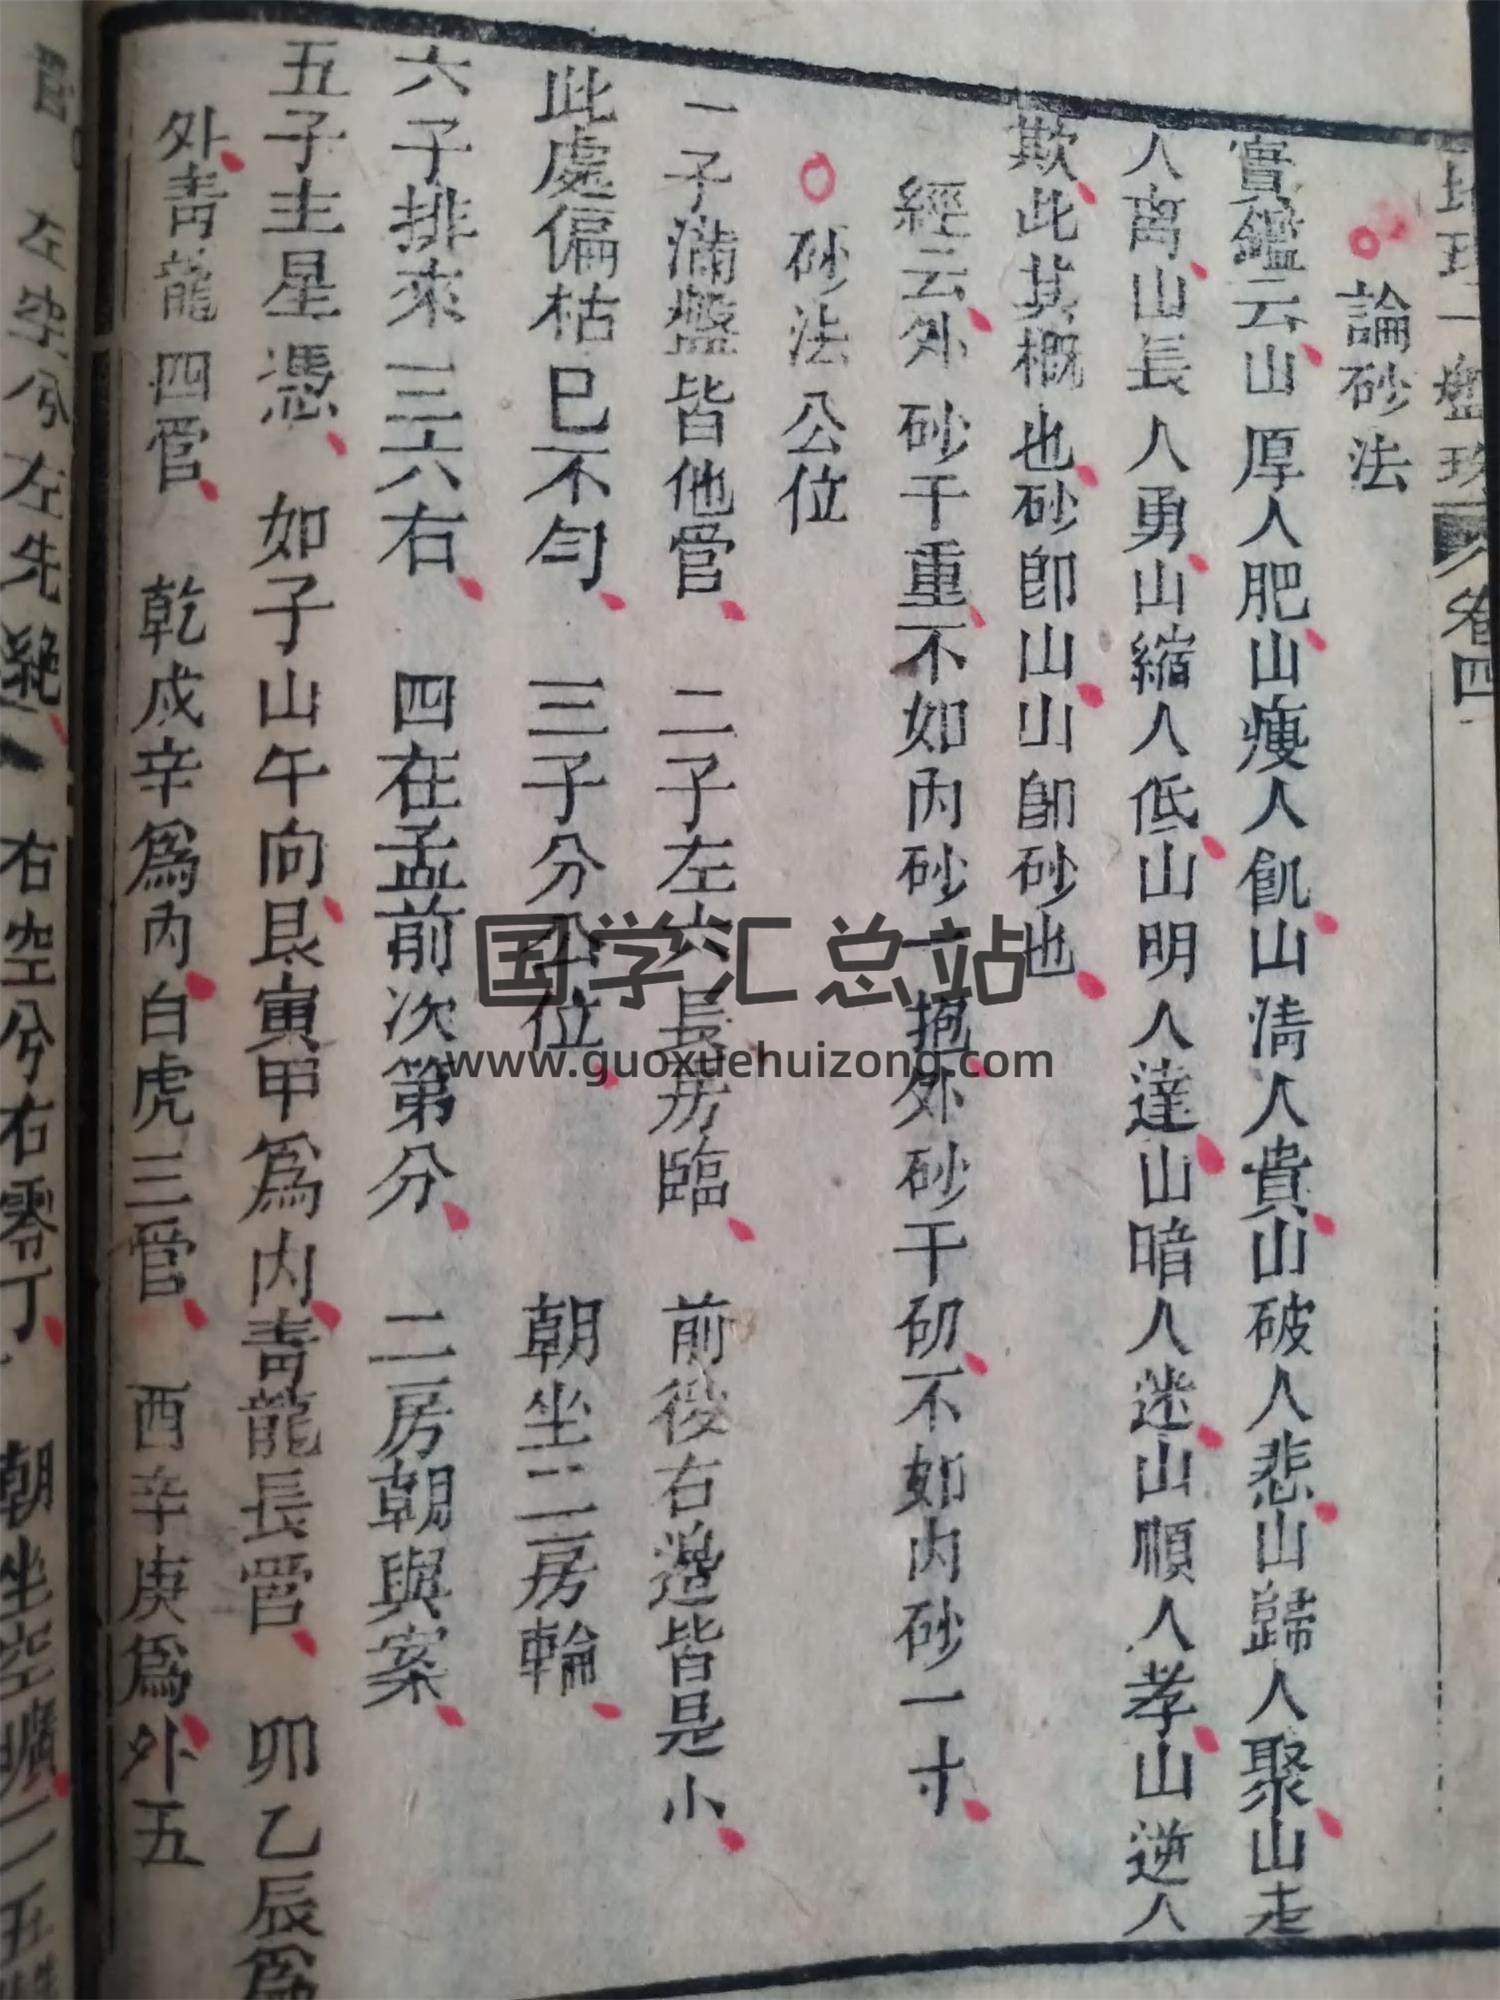 地理一盤珠 卷四
論砂法
寶鑑云山厚人肥山瘦人飢山清人貴山破人悲山歸人聚山走
人离山長人勇山縮人低山明人達山暗人迷山順人孝山逆人
欺此其概也砂卽山山卽砂也
經云外砂千重不如內砂一抱外砂千仞不如內砂一寸
砂法公位
一子滿盤皆他管 二子左六長房臨 前後右邉皆是小
此處偏枯巳不勻 三子分公位 朝坐二房輪
六子排來三六右 四在孟前次第分 二房朝與案
五子主星憑 如子山午向艮寅甲爲內青龍長管 卯乙辰爲
外青龍四管 乾戍辛爲內白虎三管 酉辛庚爲外五
左空兮左先絕 右空兮右零丁 朝坐空曠二五
国学汇总站
www.guoxuehuizong.com